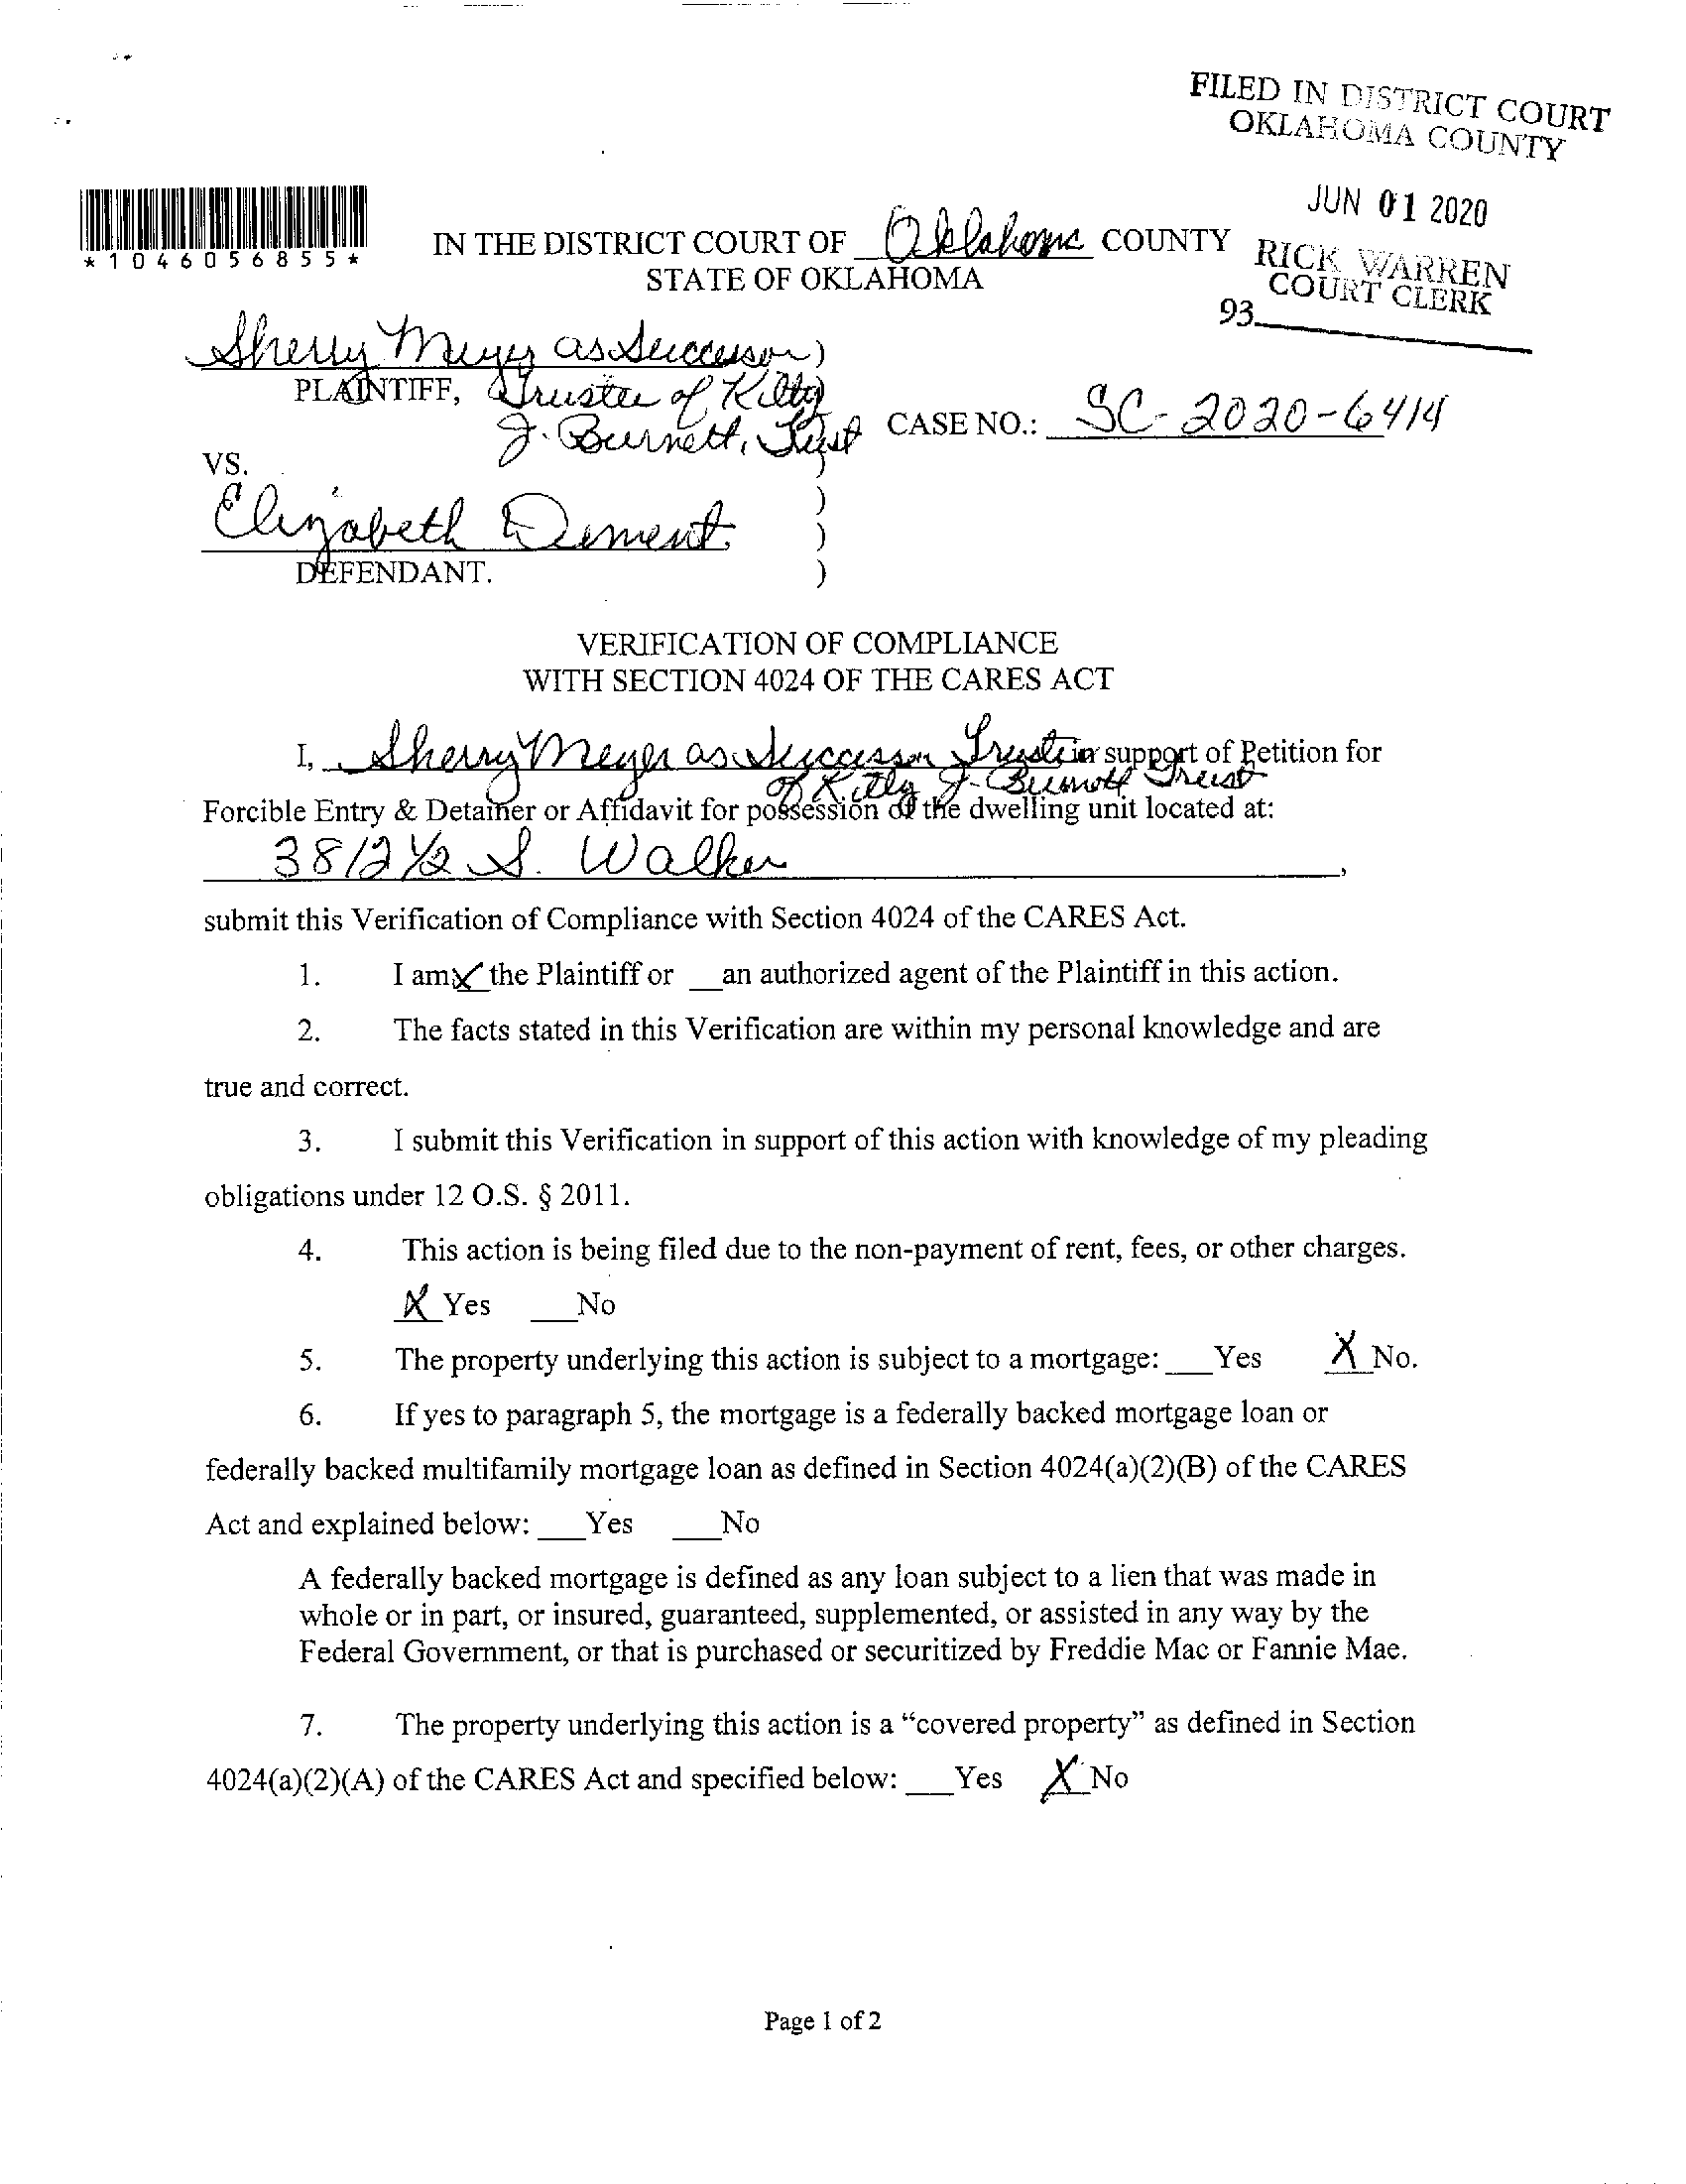 FILED IN DISTRICT COURT
OKLAHOMA COUNTY
JUN 01 2020
RICK WARREN
COURT CLERK
93
*1046056855*
IN THE DISTRICT COURT OF Oklahoma COUNTY
STATE OF OKLAHOMA
Sherry Meyer as Successor )
PLAINTIFF, Trustee of Kitty )
J. Burnett, Trust
)
CASE NO.: SC-2020-6414
VS.
Elizabeth Dement. )
)
DEFENDANT. )
VERIFICATION OF COMPLIANCE
WITH SECTION 4024 OF THE CARES ACT
I, Sherry Meyer as Successor Trustee in support of Petition for
of Kitty J. Burnett Trust
Forcible Entry & Detainer or Affidavit for possession of the dwelling unit located at:
3812 1/2 S. Walker ,
submit this Verification of Compliance with Section 4024 of the CARES Act.
1. I am X the Plaintiff or __an authorized agent of the Plaintiff in this action.
2. The facts stated in this Verification are within my personal knowledge and are
true and correct.
3. I submit this Verification in support of this action with knowledge of my pleading
obligations under 12 O.S. § 2011.
4. This action is being filed due to the non-payment of rent, fees, or other charges.
X Yes ___No
5. The property underlying this action is subject to a mortgage: ___Yes X No.
6. If yes to paragraph 5, the mortgage is a federally backed mortgage loan or
federally backed multifamily mortgage loan as defined in Section 4024(a)(2)(B) of the CARES
Act and explained below: ___Yes ___No
A federally backed mortgage is defined as any loan subject to a lien that was made in
whole or in part, or insured, guaranteed, supplemented, or assisted in any way by the
Federal Government, or that is purchased or securitized by Freddie Mac or Fannie Mae.
7. The property underlying this action is a “covered property” as defined in Section
4024(a)(2)(A) of the CARES Act and specified below: ___Yes X No
Page 1 of 2